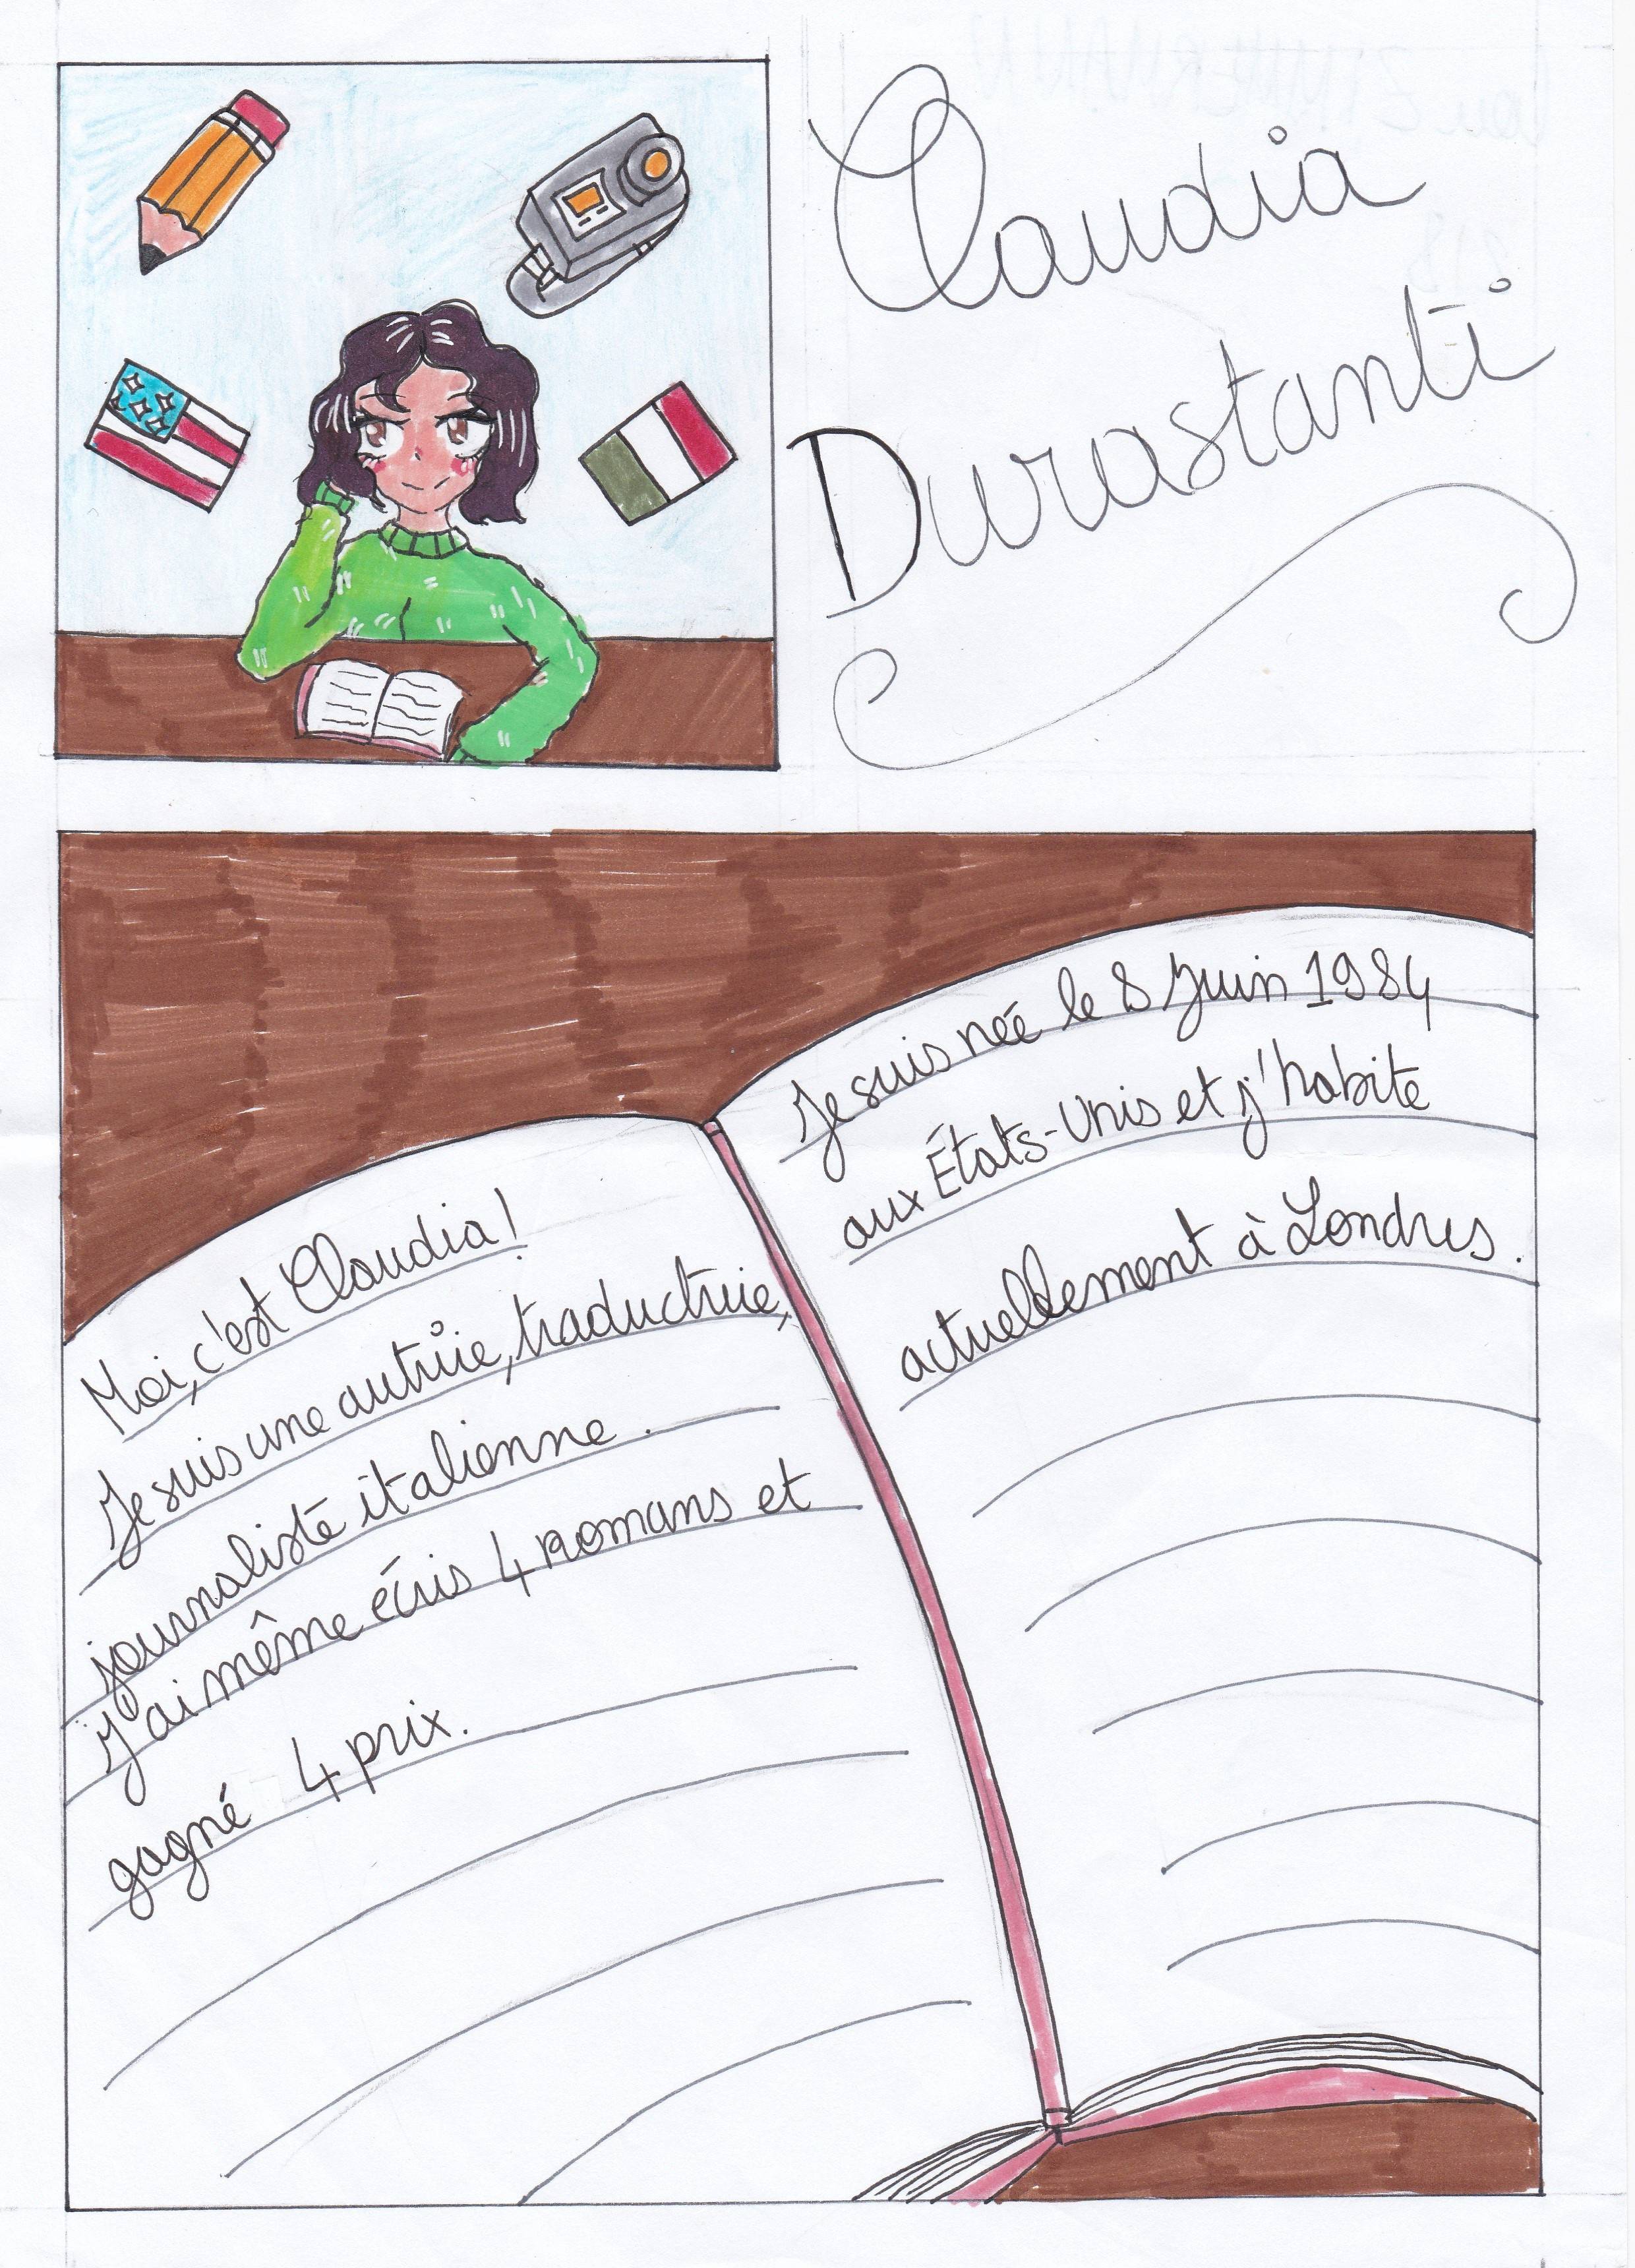 Claudia
Durastanti
Moi, c'est Claudia!
Je suis une autrice, traductrice,
journaliste italienne.
J'ai même écris 4 romans et
gagné 4 prix.
Je suis née le 8 Juin 1984
aux États-Unis et j'habite
actuellement à Londres.